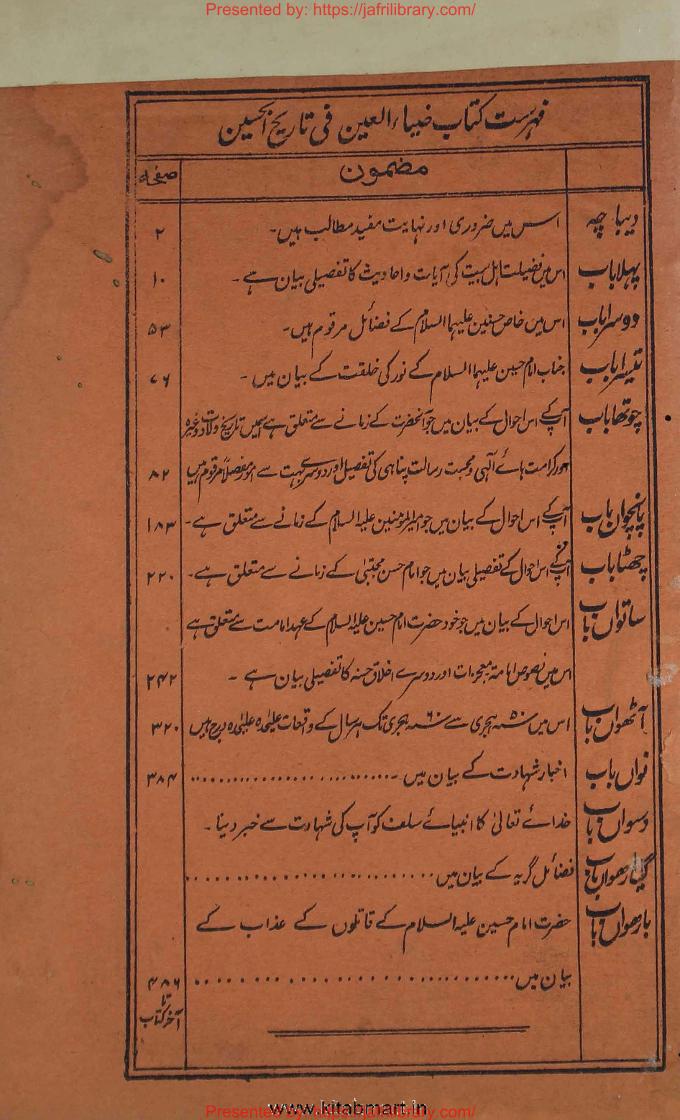 Presented by: https://jafrilibrary.com/
فہرست کتاب ضیاء العین فی تاریخ الحسین
مضمون صفحہ
دیباچہ اس میں ضروری اور نہایت مفید مطالب ہیں۔ ۲
پہلا باب اس میں فضیلت اہل بیت کی آیات و احادیث کا تفصیلی بیان ہے۔ ۱۰
دوسرا باب اس میں خاص حسنین علیہما السلام کے فضائل مرقوم ہیں۔ ۵۳
تیسرا باب جناب امام حسین علیہما السلام کے نور کی خلقت کے بیان میں۔ ۷۶
چوتھا باب آپکے اس احوال کے بیان میں جو آنحضرت کے زمانے سے متعلق ہے اسمیں تاریخ ولادت وغیرہ
اور کرامت ہائے الٰہی و محبت رسالت پناہی کی تفصیل اور دوسرے بہت سے امور مفصلاً مرقوم ہیں ۸۲
پانچواں باب آپکے اس احوال کے بیان میں جو امیرالمومنین علیہ السلام کے زمانے سے متعلق ہے۔ ۱۸۳
چھٹا باب آپکے اس احوال کے تفصیلی بیان میں جو امام حسن مجتبیٰ کے زمانے سے متعلق ہے۔ ۲۲۰
ساتواں باب اس احوال کے بیان میں جو خود حضرت امام حسین علیہ السلام کے عہد امامت سے متعلق ہے
اس میں نصوص امامتہ معجزات اور دوسرے اخلاق حسنہ کا تفصیلی بیان ہے۔ ۲۴۲
آٹھواں باب اس میں ۵۰ سنہ ہجری سے ۶۰ سنہ ہجری تک ہر سال کے واقعات علیحدہ علیحدہ درج ہیں ۳۲۰
نواں باب اخبار شہادت کے بیان میں۔ ۳۸۴
دسواں باب خدائے تعالیٰ کا انبیائے سلف کو آپ کی شہادت سے خبر دینا۔
گیارھواں باب فضائل گریہ کے بیان میں
بارھواں باب حضرت امام حسین علیہ السلام کے قاتلوں کے عذاب کے
بیان میں ۴۸۶
تا
آخر کتاب
www.kitabmart.in
Presented by: https://jafrilibrary.com/